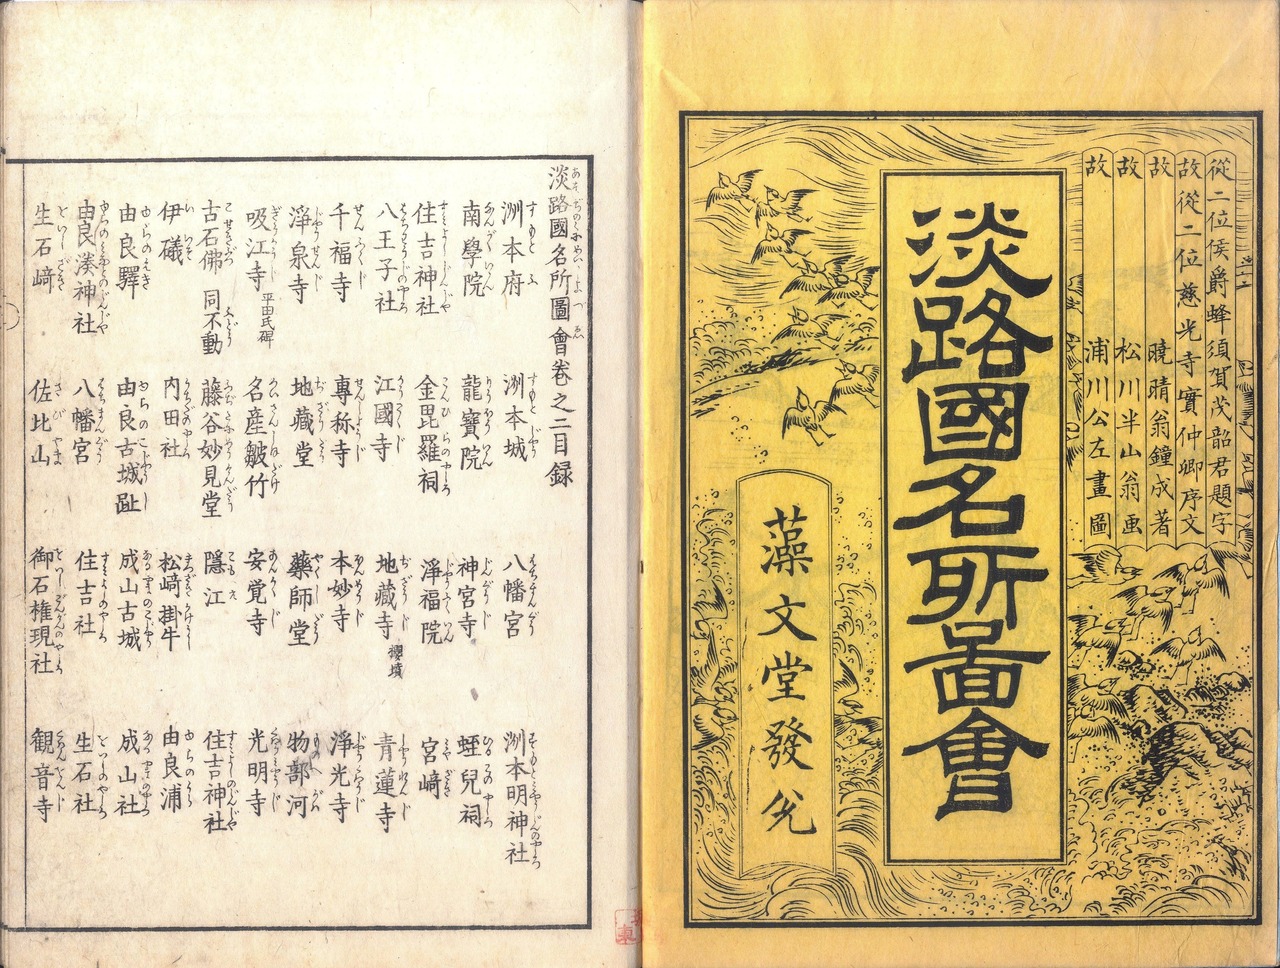 從二位侯爵蜂須賀茂韶君題字
故從二位慈光寺實仲卿序文
故 曉晴翁鐘成著
故 松川半山翁画
浦川公左畫圖
淡路國名所圖會
藻文堂發兌
淡路國名所圖會卷之二目録
洲本府 洲本城 八幡宮 洲本明神社
南學院 龍寶院 神宮寺 蛭兒祠
住吉神社 金毘羅祠 淨福院 宮﨑
八王子社 江國寺 地藏寺 櫻墳 青蓮寺
千福寺 專称寺 本妙寺 淨光寺
淨泉寺 地藏堂 藥師堂 物部河
吸江寺 平田氏碑 名産皺竹 安覚寺 光明寺
古石佛 同不動 藤谷妙見堂 隱江 住吉神社
伊礒 内田社 松﨑掛牛 由良浦
由良驛 由良古城趾 成山古城 成山社
由良湊神社 八幡宮 住吉社 生石社
生石﨑 佐比山 御石権現社 観音寺